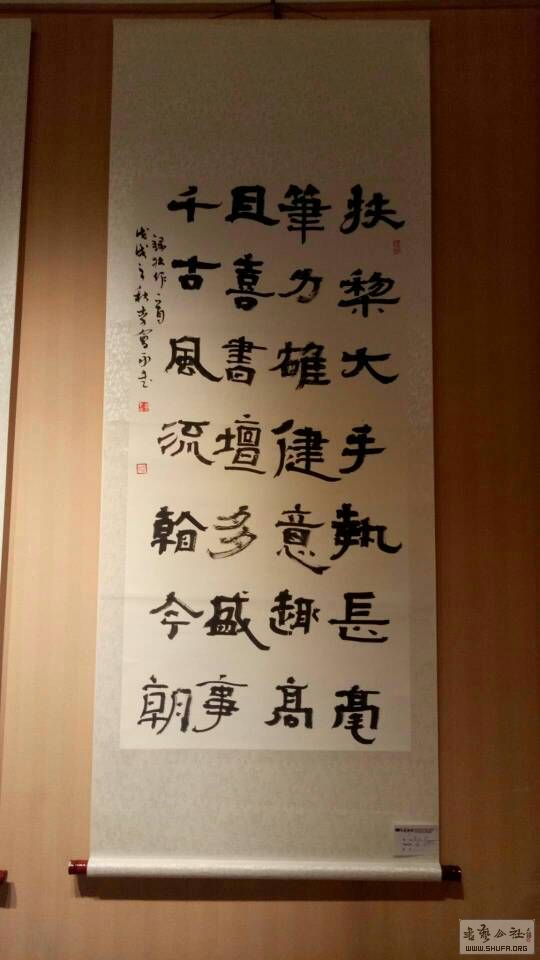 扶犂大手執長毫
筆力雄健意趣高
且喜書壇多盛事
千古風流輸今朝
錄拙作一首
戊戌之秋李
书艺公社
WWW.SHUFA.ORG